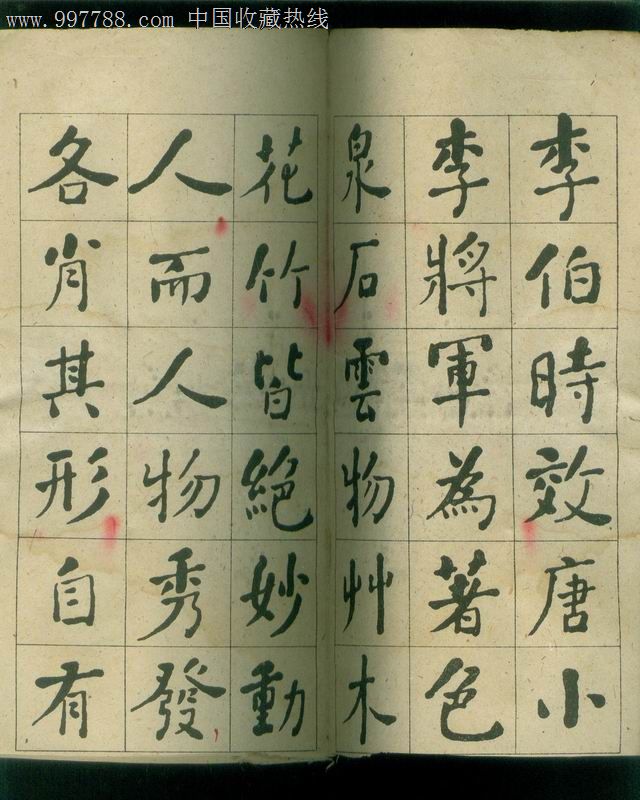 www.997788.com 中国收藏热线
李伯時效唐小
李將軍為著色
泉石雲物艸木
花竹皆絕妙動
人而人物秀發
各肖其形自有